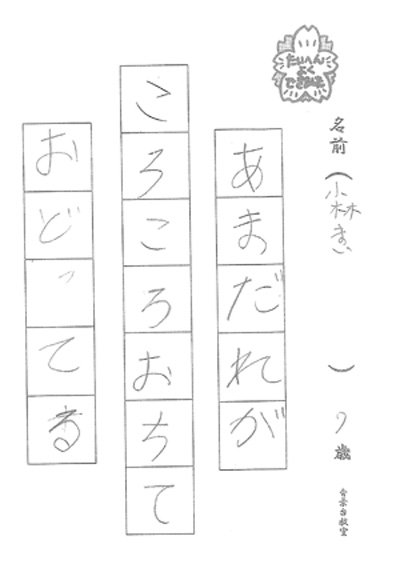 たいへん
よく
できました
名前（小林まい）9歳
青葉台教室
あまだれが
ころころおちて
おどってる